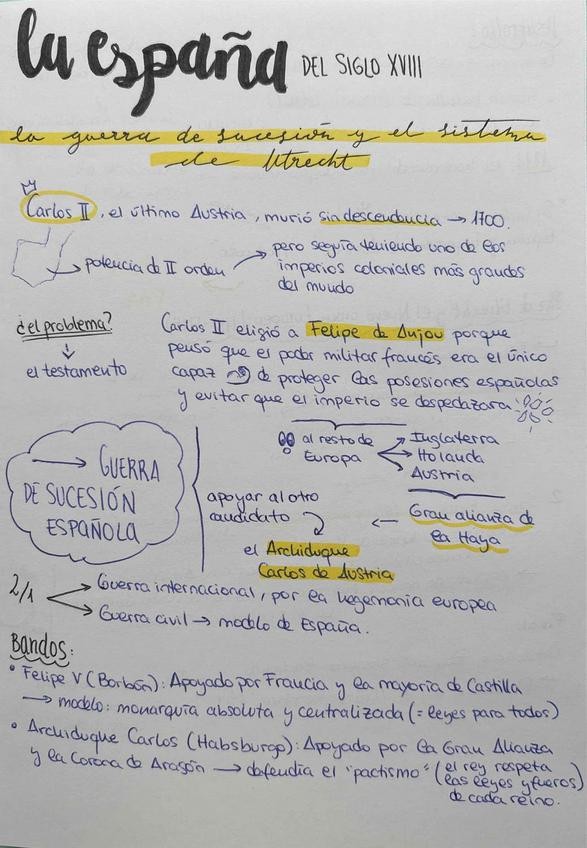 la españa DEL SIGLO XVIII
la guerra de sucesión y el sistema
de Utrecht
Carlos II, el último Austria, murió sin descendencia → 1700.
potencia de II orden
pero seguía teniendo uno de los
imperios coloniales más grandes
del mundo
¿el problema?
↓
el testamento
Carlos II eligió a Felipe de Anjou porque
pensó que el poder militar francés era el único
capaz de proteger las posesiones españolas
y evitar que el imperio se despedazara
al resto de
Europa
Inglaterra
Holanda
Austria
→ GUERRA
DE SUCESIÓN
ESPAÑOLA
apoyar al otro
candidato
← Gran alianza de
la Haya
el Archiduque
Carlos de Austria
2/1
Guerra internacional, por la hegemonía europea
Guerra civil → modelo de España.
Bandos:
° Felipe V (Borbón): Apoyado por Francia y la mayoría de Castilla
→ modelo: monarquía absoluta y centralizada (= leyes para todos)
° Archiduque Carlos (Habsburgo): Apoyado por la Gran Alianza
y la Corona de Aragón → defendía el "pactismo" (el rey respeta
las leyes y fueros)
de cada reino.